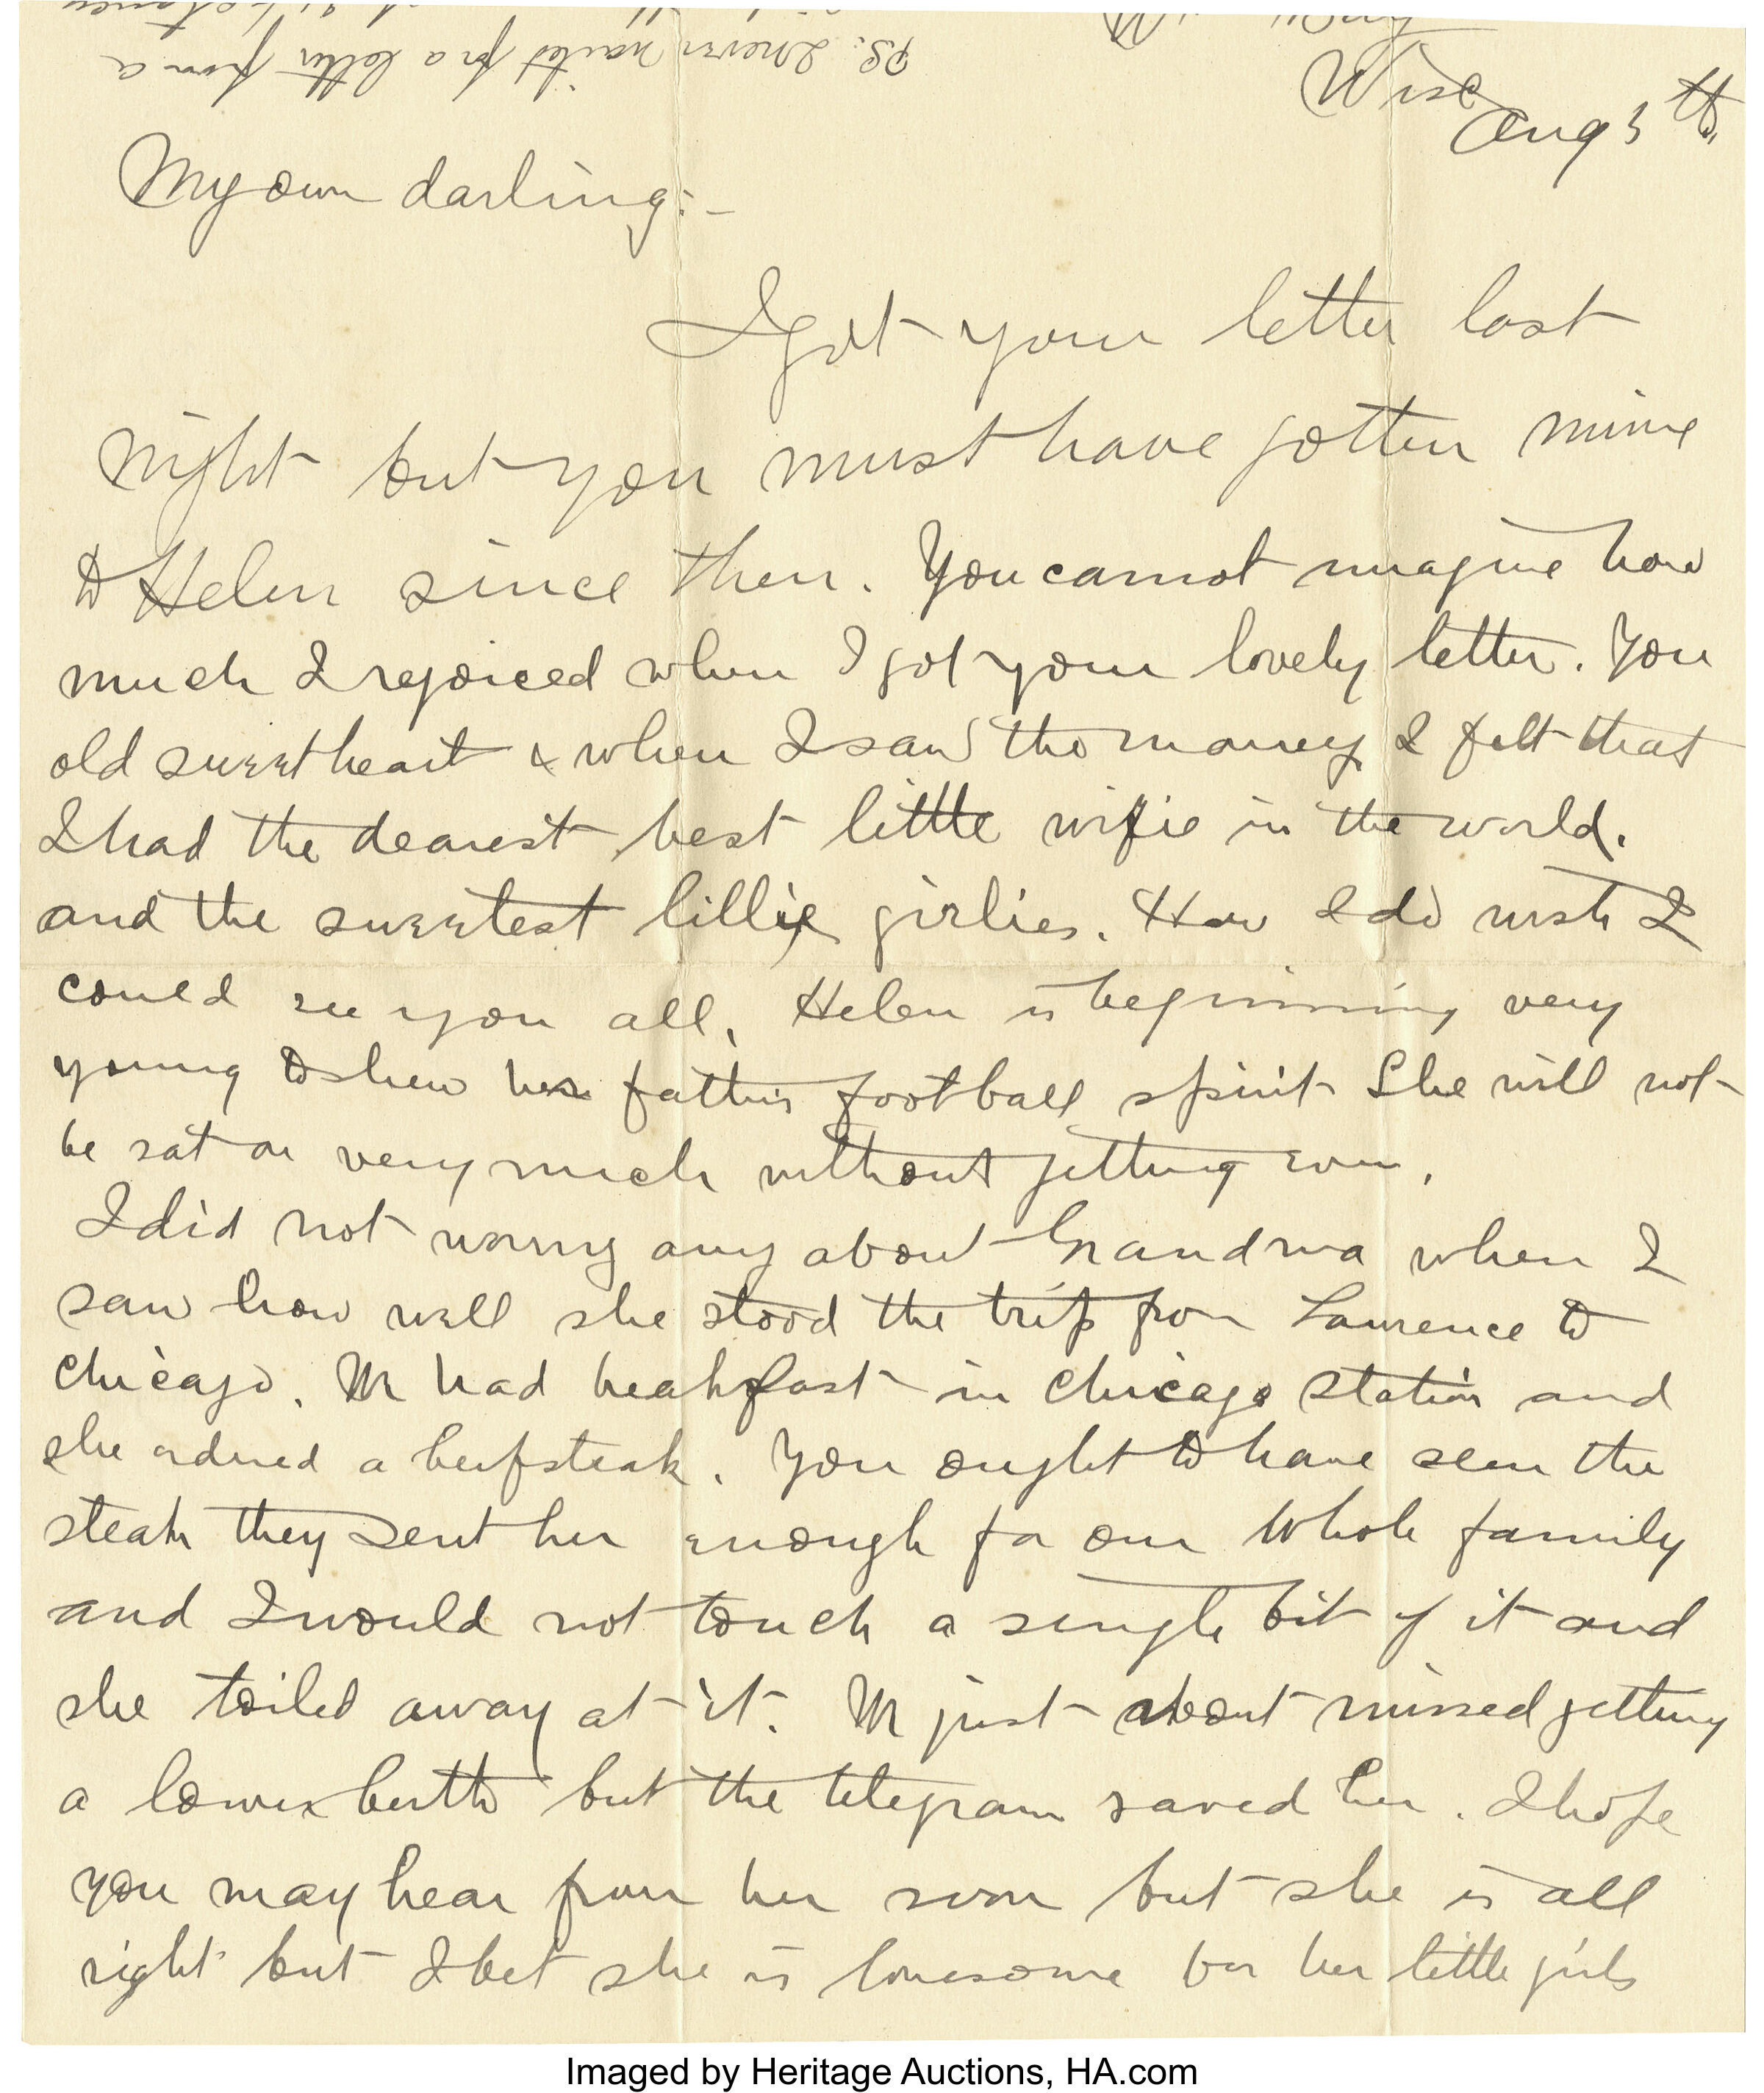 PS. I never waited for a letter from a
Wisc
Aug 5th
My own darling:-
I got your letter last
night but you must have gotten mine
to Helen since then. You cannot imagine how
much I rejoiced when I got your lovely letter. You
old sweetheart & when I saw the money I felt that
I had the dearest best little wifie in the world.
and the sweetest little girlies. How I do wish I
could see you all. Helen is beginning very
young to show her father's football spirit She will not
be sat on very much without getting even.
I did not worry any about Grandma when I
saw how well she stood the trip from Lawrence to
Chicago. We had breakfast in Chicago station and
she ordered a beefsteak. You ought to have seen the
steak they sent her enough for our whole family
and I would not touch a single bit of it and
she toiled away at it. We just about missed getting
a lower berth but the telegram saved her. I hope
you may hear from her soon but she is all
right but I bet she is lonesome for her little girls
Imaged by Heritage Auctions, HA.com